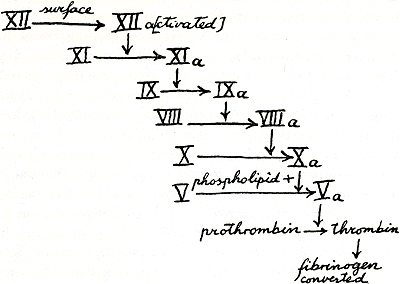 surface
XII XII a[activated]
XI XI a
IX IX a
VIII VIII a
X X a
V phospholipid + V a
prothrombin thrombin
fibrinogen
converted